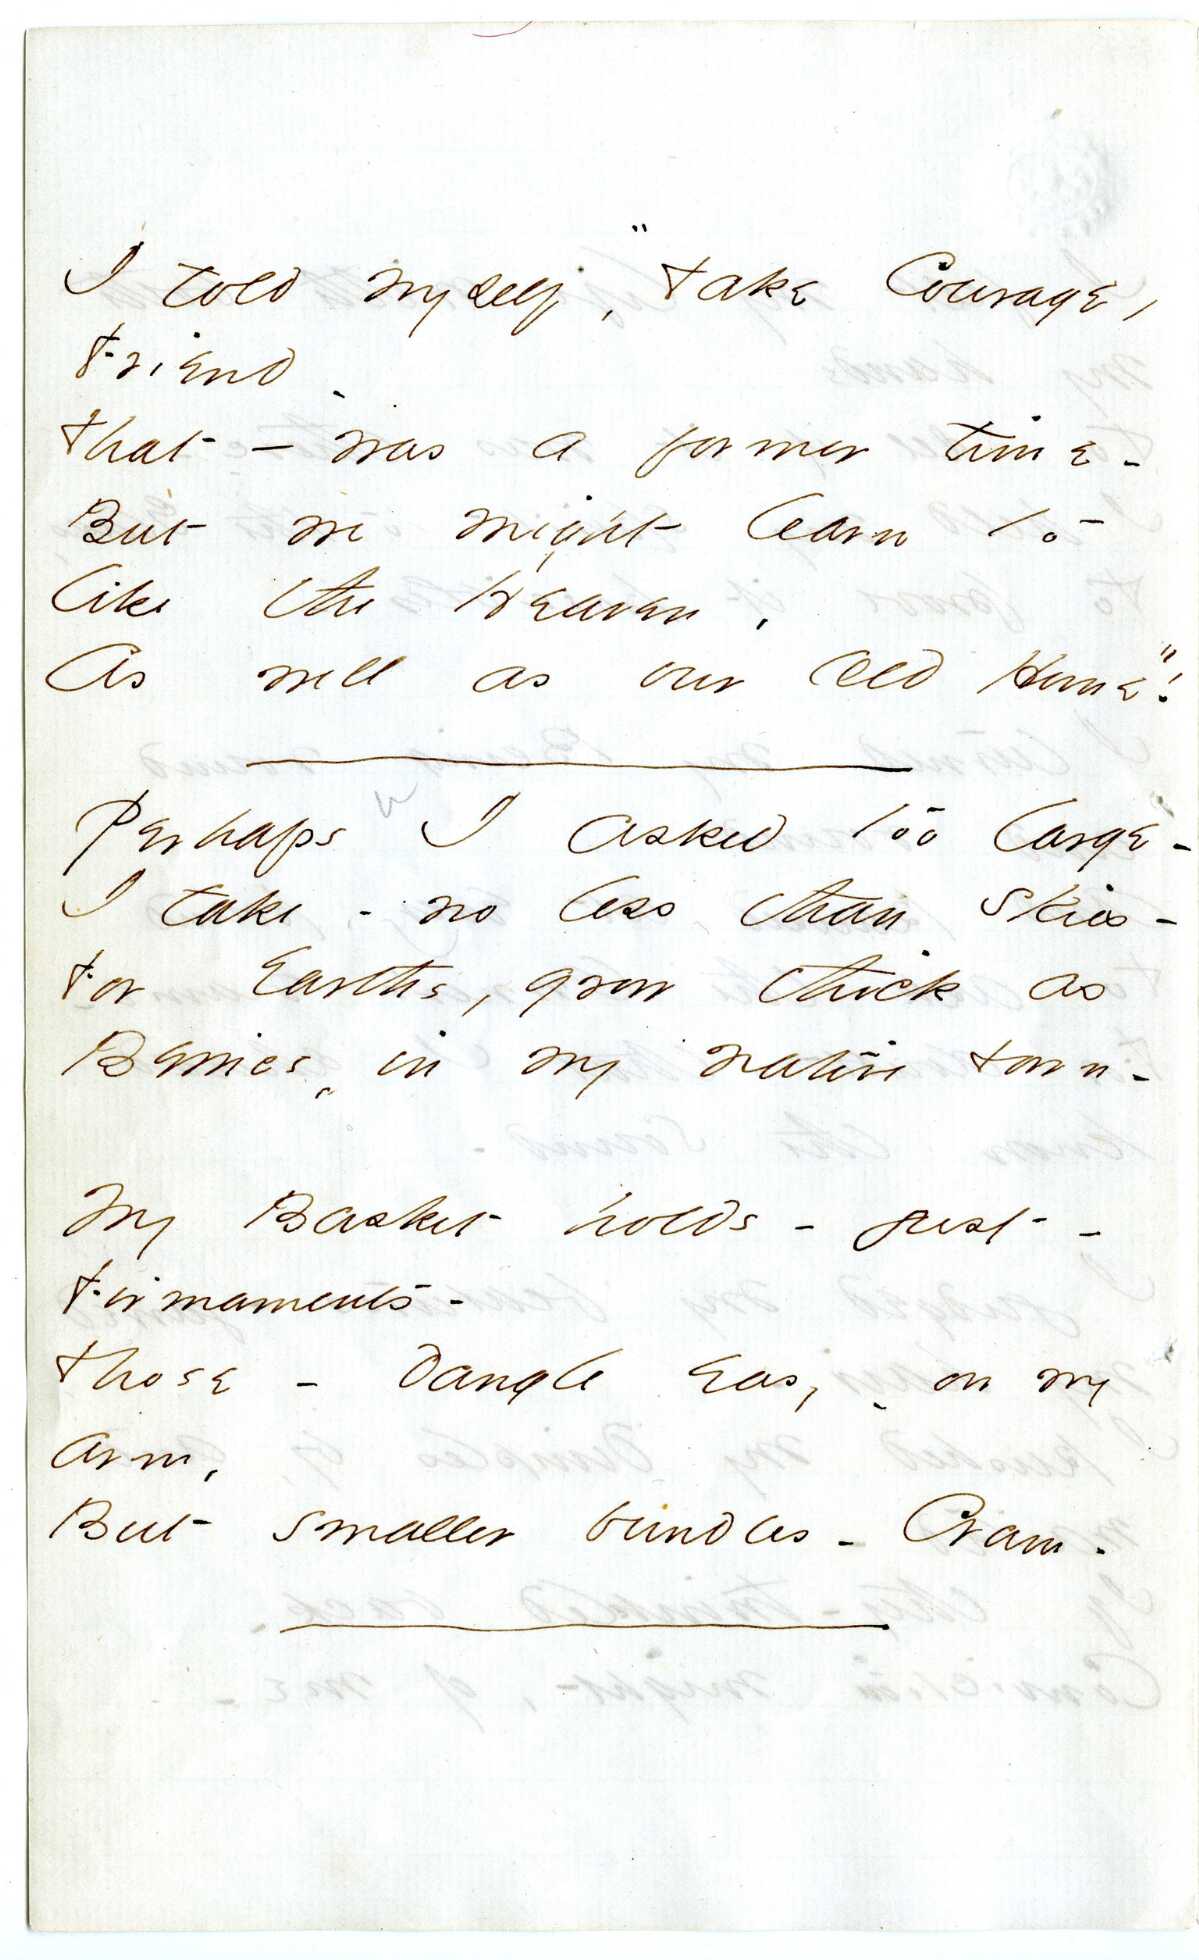 I told myself, "Take Courage,
Friend -
That - was a former time -
But we might learn to
like the Heaven,
As well as our Old Home"!
Perhaps I asked too large -
I take - no less than skies -
For Earths, grow thick as
Berries, in my native town -
My Basket holds - just -
Firmaments -
Those - dangle easy - on my
arm,
But smaller bundles - Cram.